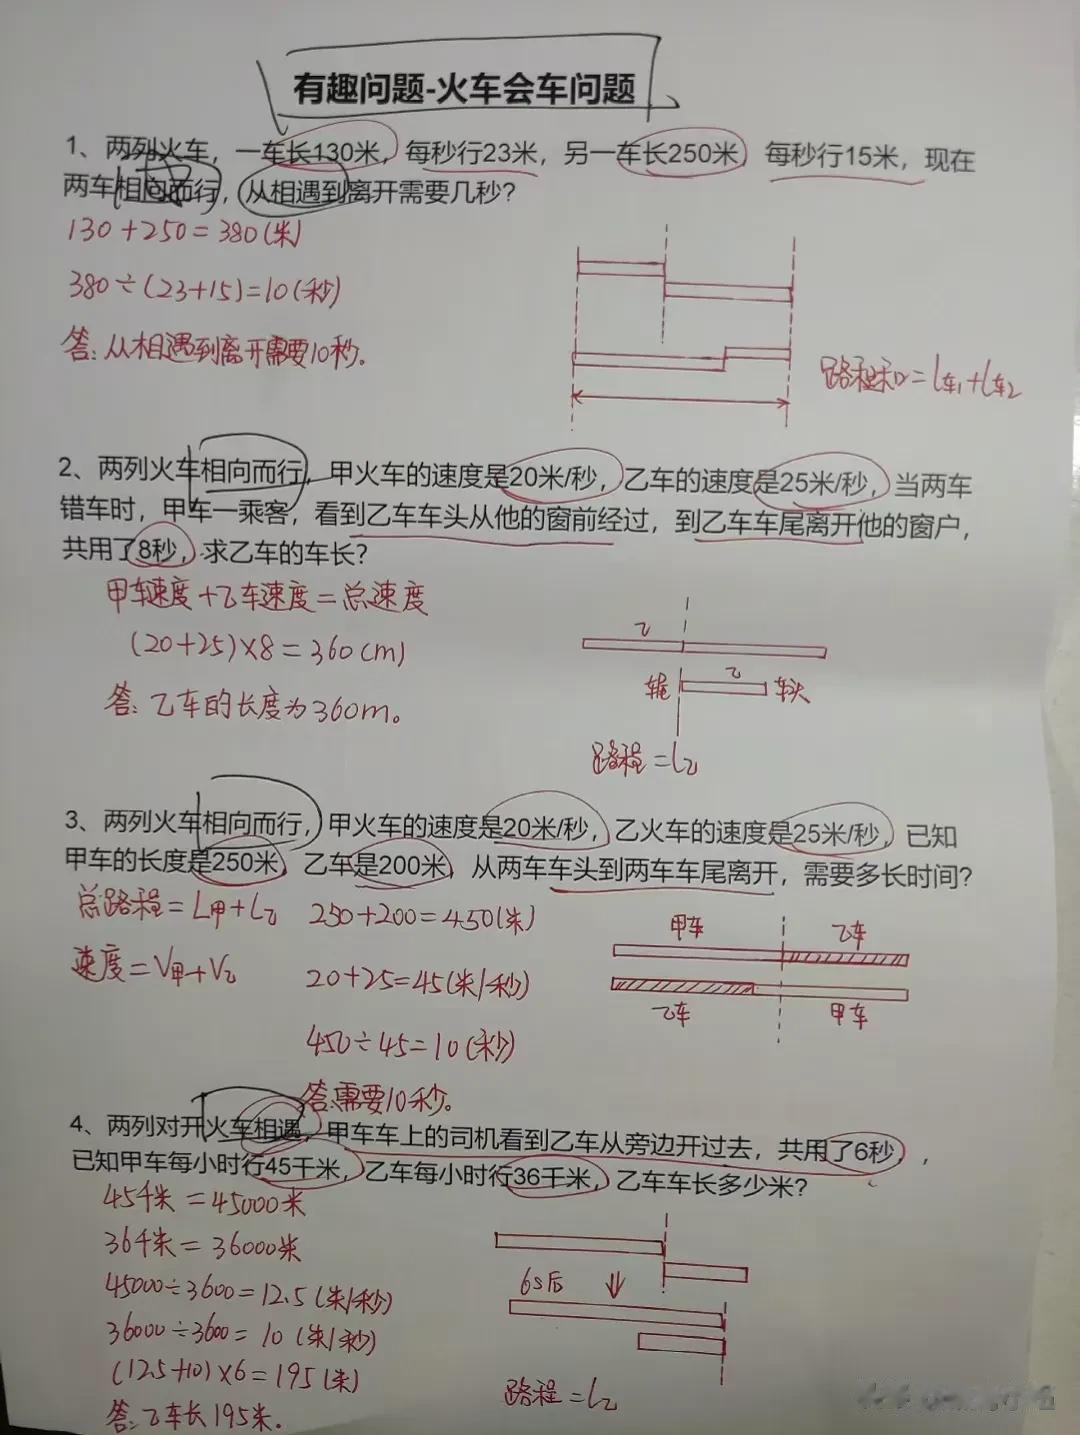 有趣问题-火车会车问题
1、两列火车，一车长130米，每秒行23米，另一车长250米，每秒行15米，现在
两车相向而行，从相遇到离开需要几秒？
130+250=380(米)
380÷(23+15)=10(秒)
答:从相遇到离开需要10秒.
路程和=l车1+l车2
2、两列火车相向而行，甲火车的速度是20米/秒，乙车的速度是25米/秒，当两车
错车时，甲车一乘客，看到乙车车头从他的窗前经过，到乙车车尾离开他的窗户，
共用了8秒，求乙车的车长？
甲车速度+乙车速度=总速度
(20+25)×8=360(m)
答:乙车的长度为360m。
乙
乙
车尾
车头
路程=l乙
3、两列火车相向而行，甲火车的速度是20米/秒，乙火车的速度是25米/秒，已知
甲车的长度是250米，乙车是200米，从两车车头到两车车尾离开，需要多长时间？
总路程=L甲+L乙
速度=V甲+V乙
250+200=450(米)
20+25=45(米/秒)
450÷45=10(秒)
答:需要10秒。
甲车
乙车
乙车
甲车
4、两列对开火车相遇，甲车车上的司机看到乙车从旁边开过去，共用了6秒，，
已知甲车每小时行45千米，乙车每小时行36千米，乙车车长多少米？
45千米=45000米
36千米=36000米
45000÷3600=12.5(米/秒)
36000÷3600=10(米/秒)
(12.5+10)×6=195(米)
答:乙车长195米.
6s后
路程=l乙